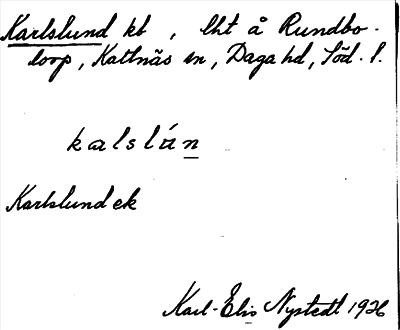 Karlslund kt , lht å Rundbo-
torp, Kattnäs sn, Daga hd, Söd. l.
kalslún
Karlslund ek
Karl-Elis Nystedt 1926